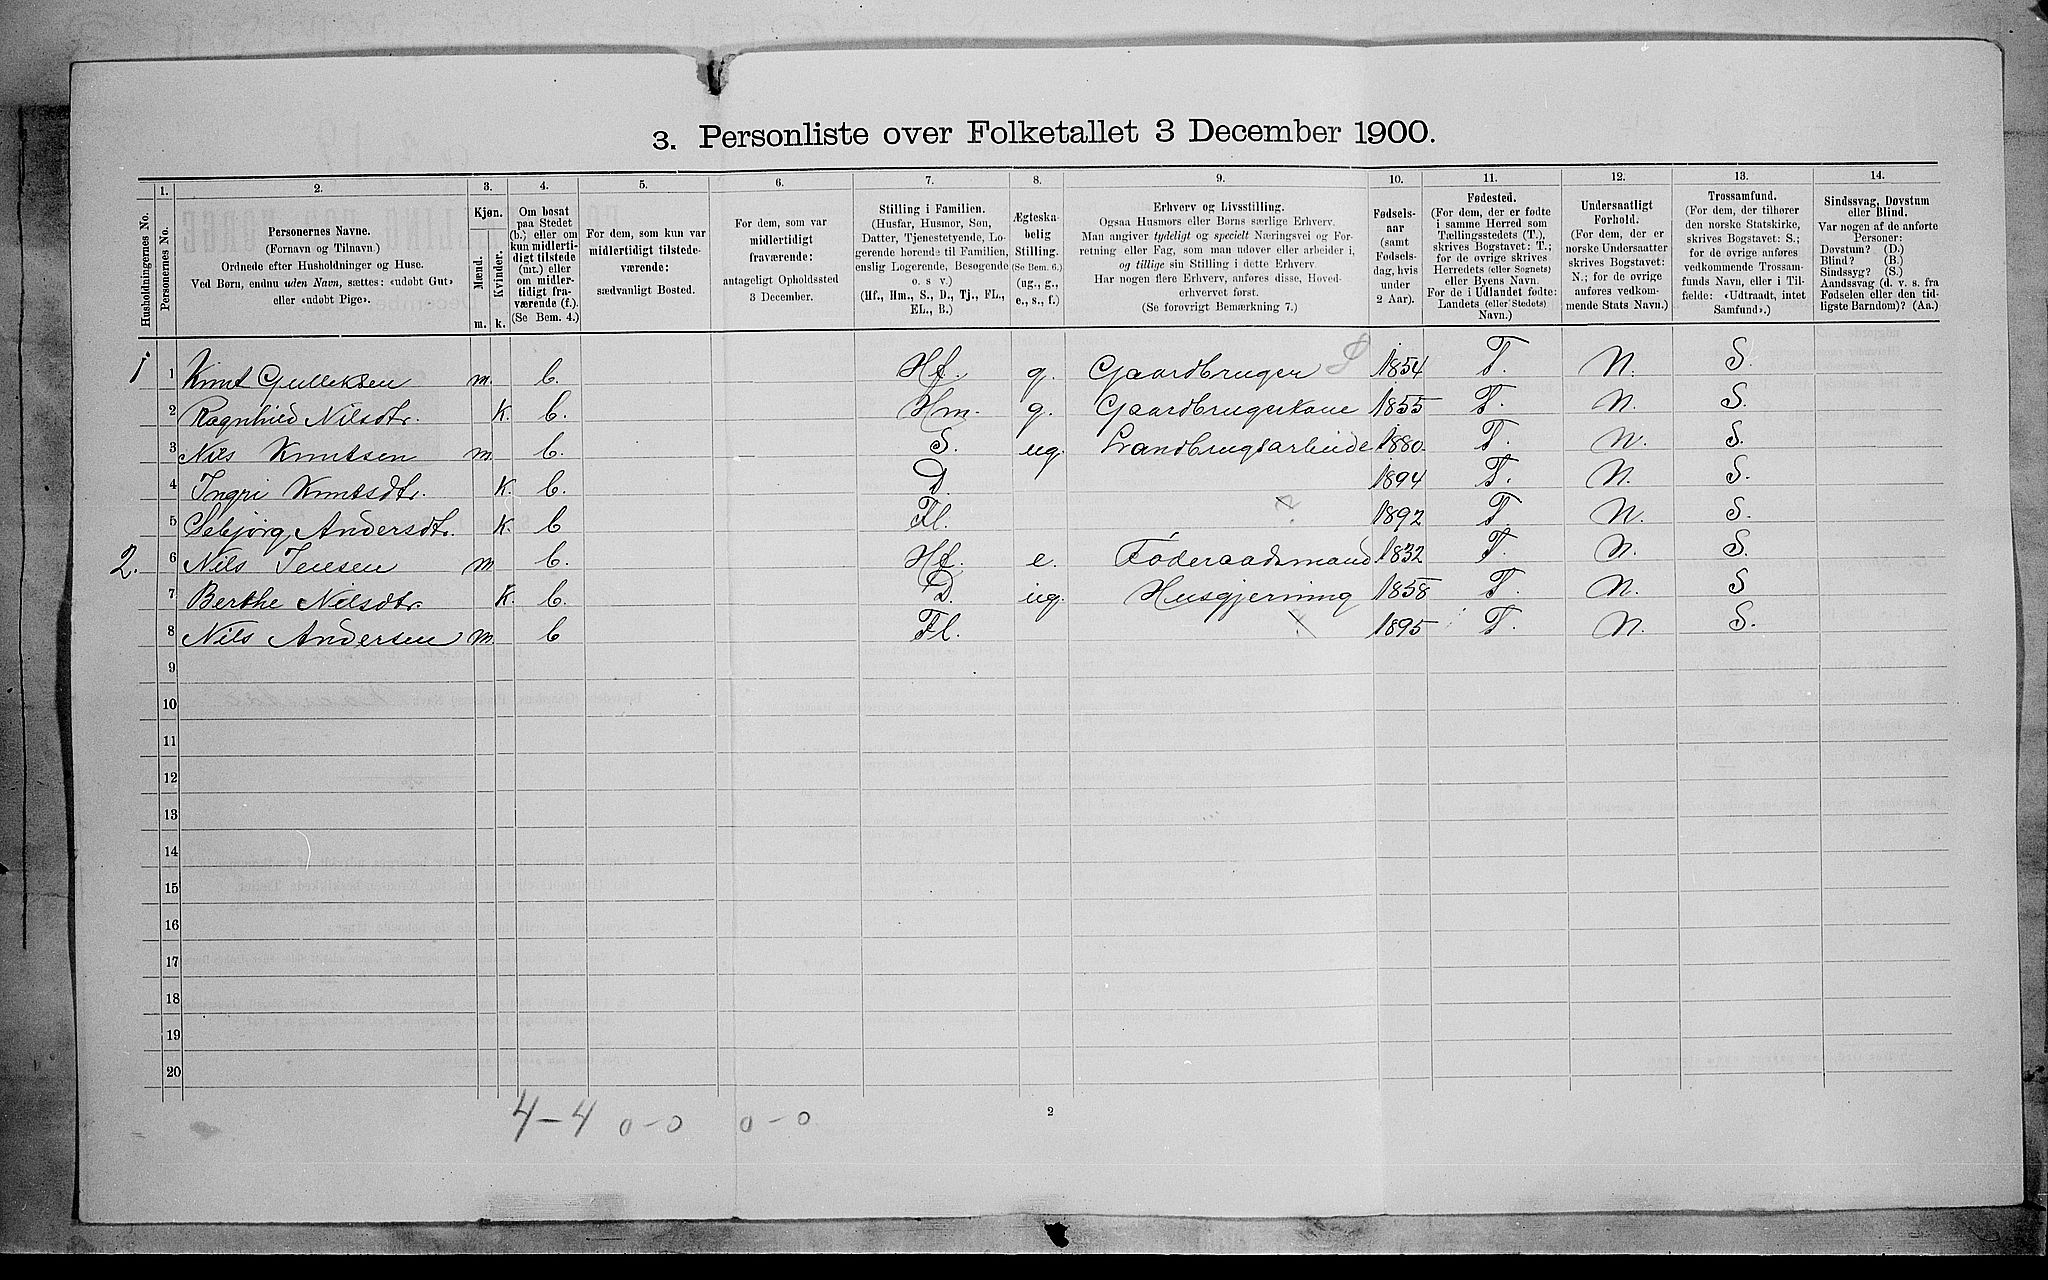 3. Personliste over Folketallet 3 December 1900.
Husholdningernes No.
1. Personernes No.
2. Personernes Navne.
(Fornavn og Tilnavn.)
Ordnede efter Husholdninger og Huse.
Ved Børn, endnu uden Navn, sættes: «udøbt Gut»
eller «udøbt Pige».
3. Kjøn.
Mænd. m.
Kvinder. k.
4. Om bosat
paa Stedet
(b.) eller om
kun midlerti-
digt tilstede
(mt.) eller
om midler-
tidigt fra-
værende (f.).
(Se Bem. 4.)
5. For dem, som kun var
midlertidigt tilstede-
værende:
sædvanligt Bosted.
6. For dem, som var
midlertidigt
fraværende:
antageligt Opholdssted
3 December.
7. Stilling i Familien.
(Husfar, Husmor, Søn,
Datter, Tjenestetyende, Lo-
gerende hørende til Familien,
enslig Logerende, Besøgende
o. s v.)
(Hf., Hm., S., D., Tj., FL.,
EL., B.)
8. Ægteska-
belig
Stilling.
(Se Bem. 6.)
(ug., g.,
e., s., f.)
9. Erhverv og Livsstilling.
Ogsaa Husmors eller Børns særlige Erhverv.
Man angiver tydeligt og specielt Næringsvei og For-
retning eller Fag, som man udøver eller arbeider i,
og tillige sin Stilling i dette Erhverv.
Har nogen flere Erhverv, anføres disse, Hoved-
erhvervet først.
(Se forøvrigt Bemærkning 7.)
10. Fødsels-
aar
(samt
Fødsels-
dag, hvis
under
2 Aar).
11. Fødested.
(For dem, der er fødte
i samme Herred som
Tællingsstedets (T.),
skrives Bogstavet: T.;
for de øvrige skrives
Herredets (eller Sognets)
eller Byens Navn.
For de i Udlandet fødte:
Landets (eller Stedets)
Navn.)
12. Undersaatligt
Forhold.
(For dem, der er
norske Undersaatter
skrives Bogstavet:
N.; for de øvrige
anføres vedkom-
mende Stats Navn.)
13. Trossamfund.
(For dem, der tilhører
den norske Statskirke,
skrives Bogstavet: S.;
for de øvrige anføres
vedkommende Trossam-
funds Navn, eller i Til-
fælde: «Udtraadt, intet
Samfund».)
14. Sindssvag, Døvstum
eller Blind.
Var nogen af de anførte
Personer:
Døvstum? (D.)
Blind? (B.)
Sindssyg? (S.)
Aandssvag (d. v. s. fra
Fødselen eller den tid-
ligste Barndom)? (Aa.)
1 1 Knut Gulleksen m. b. Hf. g. Gaardbruger 1854 T. N. S.
2 Ragnhild Nilsdtr. k. b. Hm. g. Gaardbrugerkone 1855 T. N. S.
3 Nils Knutsen m. b. S. ug. Landbrugsarbeide 1880 T. N. S.
4 Ingri Knutsdtr. k. b. D. 1894 T. N. S.
5 Sebjørg Andersdtr. k. b Fl. 1892 T. N. S.
2. 6 Nils Jensen m b. Hf. e. Føderaadsmand 1832 T. N. S.
7 Berthe Nilsdtr. k. b. D. ug. Husgjerning 1858 T. N. S
8 Nils Andersen m. b Fl. 1895 T. N. S.
9
10
11
12
13
14
15
16
17
18
19
20
4-4 0-0 0-0
2